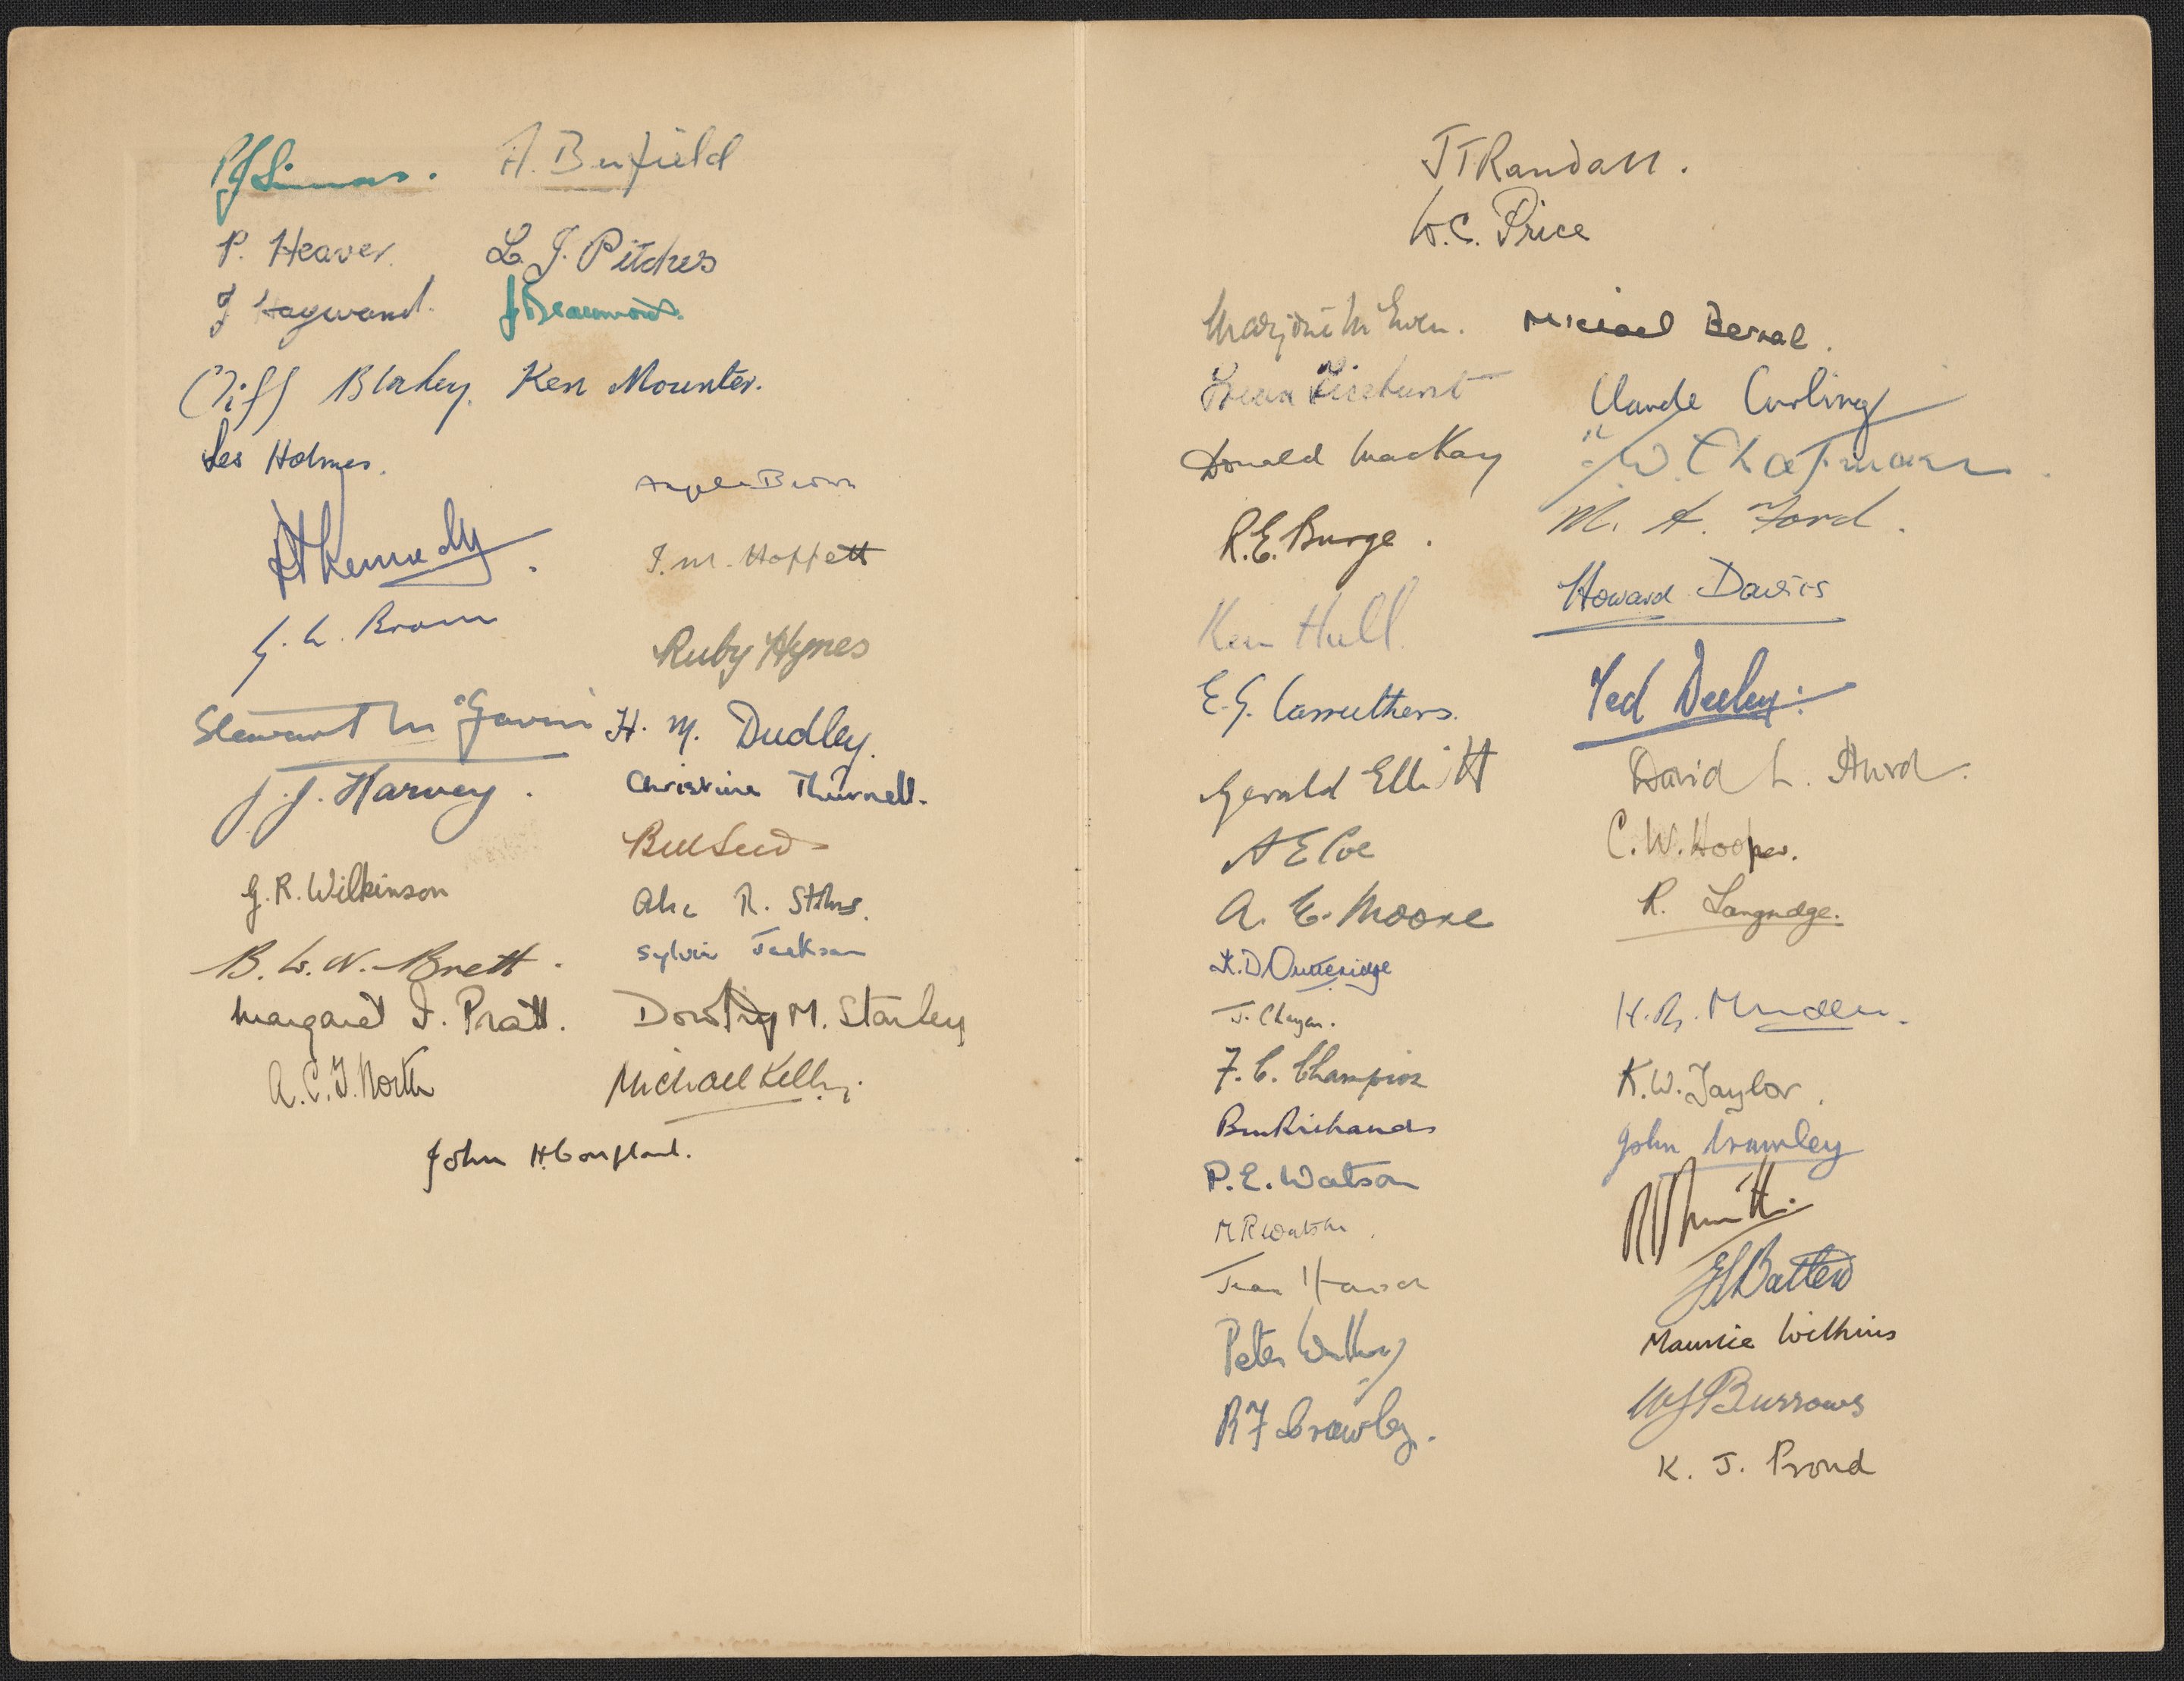 A. Benfield
P. Heaver.
L. J. Pitches
J Hayward.
J Beaumont.
Cliff Blakey.
Ken Mounter.
Les Holmes.
Angela Brown
Kennedy.
Ruby Hynes
G. L. Brown
Stewart McGavin
H. M. Dudley.
J. J. Harvey.
Christine Thurnell.
Bill Seeds
G. R. Wilkinson
R.
B. W. N. Brett.
Sylvia Jackson
Margaret I. Pratt.
Dorothy M. Stanley
A. C. T. North
Michael Kelly.
John H.
J T Randall.
W. C. Price
Marjorie M'Ewen.
Michael Bernal.
Freda Ticehurst
Claude Curling
Donald MacKay
W. Chapman
R. E. Burge.
M. A. Ford.
Ken Hull.
Howard Davies
E. G. Carruthers.
Ted Deeley.
Gerald Elliott
David L. Hurd.
A E Coe
C. W. Hooper.
A. E. Moore
R. Langridge.
K. D. Outteridge
J. Chayen.
H. R. Munden.
F. C. Champion
K. W. Taylor.
Ben Richards
John Crawley
P. E. Watson
Smith.
M R Watson.
Batten
Jean Hanson
Maurice Wilkins
Peter Walker
W J Burrows
R F Crawley.
K. J. Proud